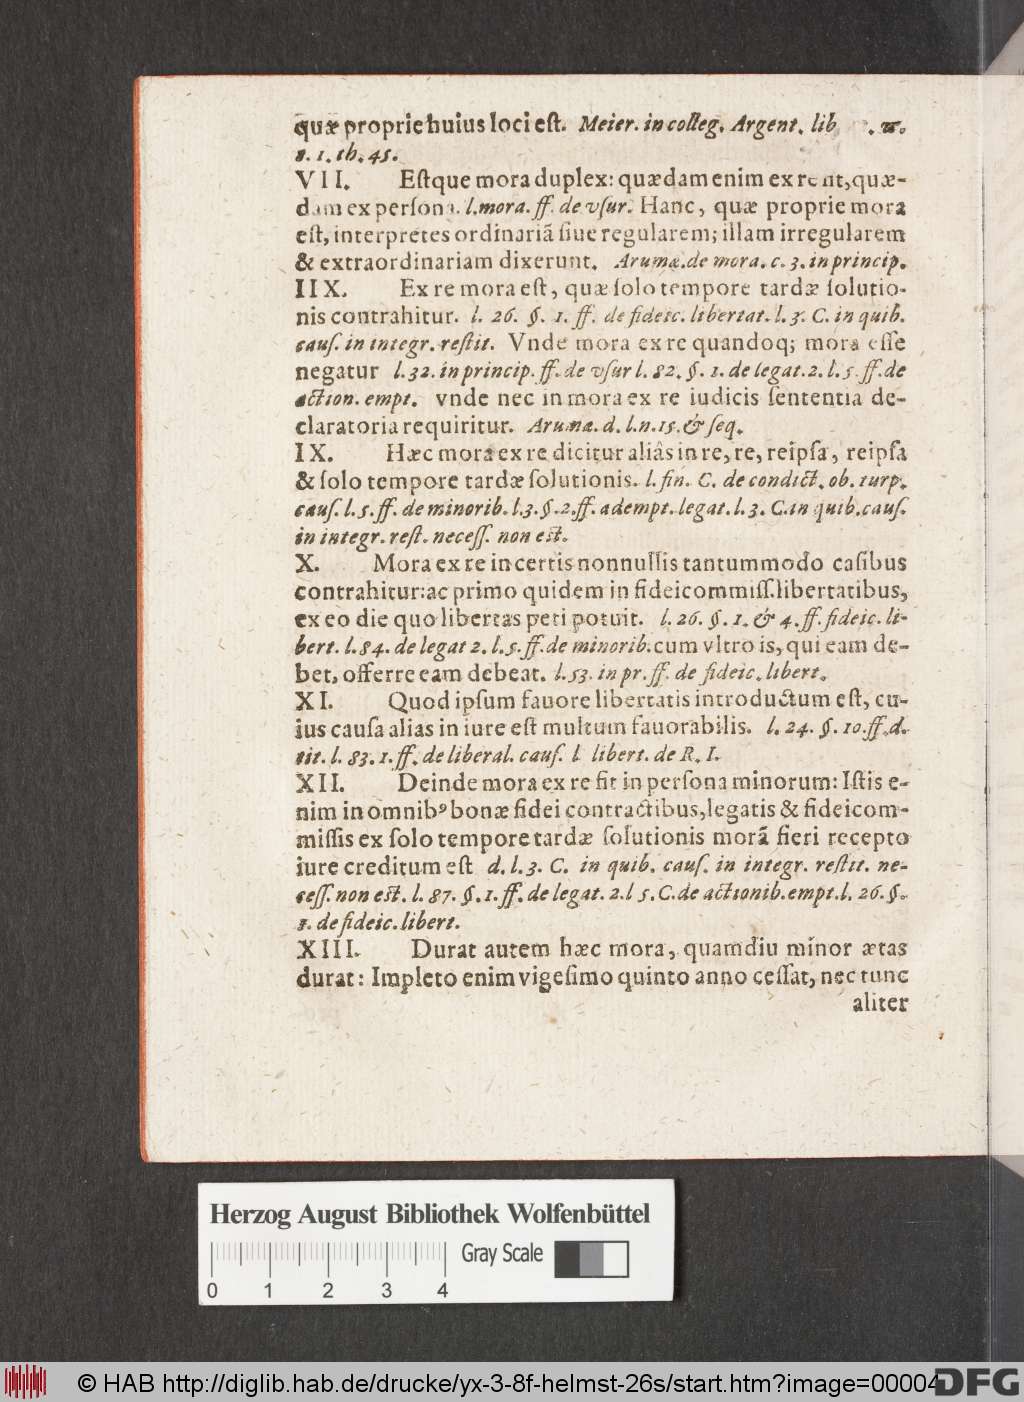 quæ proprie huius loci eſt. Meier. in colleg. Argent. lib . u.
s. 1. th. 45.
VII. Eſtque mora duplex: quædam enim ex re fit, quæ-
dam ex perſona. l. mora. ff. de vſur. Hanc, quæ proprie mora
eſt, interpretes ordinariã ſiue regularem; illam irregularem
& extraordinariam dixerunt. Arumæ. de mora. c. 3. in princip.
IIX. Ex re mora eſt, quæ ſolo tempore tardæ ſolutio-
nis contrahitur. l. 26. §. 1. ff. de fideic. libertat. l. 3. C. in quib.
cauſ. in integr. reſtit. Vnde mora ex re quandoq; mora eſſe
negatur l. 32. in princip. ff. de vſur l. 82. §. 1. de legat. 2. l. 5. ff. de
action. empt. vnde nec in mora ex re iudicis ſententia de-
claratoria requiritur. Arumæ. d. l. n. 15. & ſeq.
IX. Hæc mora ex re dicitur aliâs in re, re, reipſa, reipſa
& ſolo tempore tardæ ſolutionis. l. fin. C. de condict. ob. turp.
cauſ. l. 5. ff. de minorib. l. 3. §. 2. ff. adempt. legat. l. 3. C. in quib. cauſ.
in integr. reſt. neceſſ. non est.
X. Mora ex re in certis nonnullis tantummodo caſibus
contrahitur: ac primo quidem in fideicommiſſ. libertatibus,
ex eo die quo libertas peti potuit. l. 26. §. 1. & 4. ff. fideic. li-
bert. l. 84. de legat 2. l. 5. ff. de minorib. cum vltro is, qui eam de-
bet, offerre eam debeat. l. 53. in pr. ff. de fideic. libert.
XI. Quod ipſum fauore libertatis introductum eſt, cu-
ius cauſa alias in iure eſt multum fauorabilis. l. 24. §. 10. ff. d.
tit. l. 83. 1. ff. de liberal. cauſ. l libert. de R. I.
XII. Deinde mora ex re fit in perſona minorum: Iſtis e-
nim in omnibꝰ bonæ fidei contractibus, legatis & fideicom-
miſſis ex ſolo tempore tardæ ſolutionis morã fieri recepto
iure creditum eſt d. l. 3. C. in quib. cauſ. in integr. reſtit. ne-
ceſſ. non est. l. 87. §. 1. ff. de legat. 2. l 5. C. de actionib. empt. l. 26. §.
1. de fideic. libert.
XIII. Durat autem hæc mora, quamdiu minor ætas
durat: Impleto enim vigeſimo quinto anno ceſſat, nec tunc
aliter
Herzog August Bibliothek Wolfenbüttel
Gray Scale
0 1 2 3 4
© HAB http://diglib.hab.de/drucke/yx-3-8f-helmst-26s/start.htm?image=00004
DFG